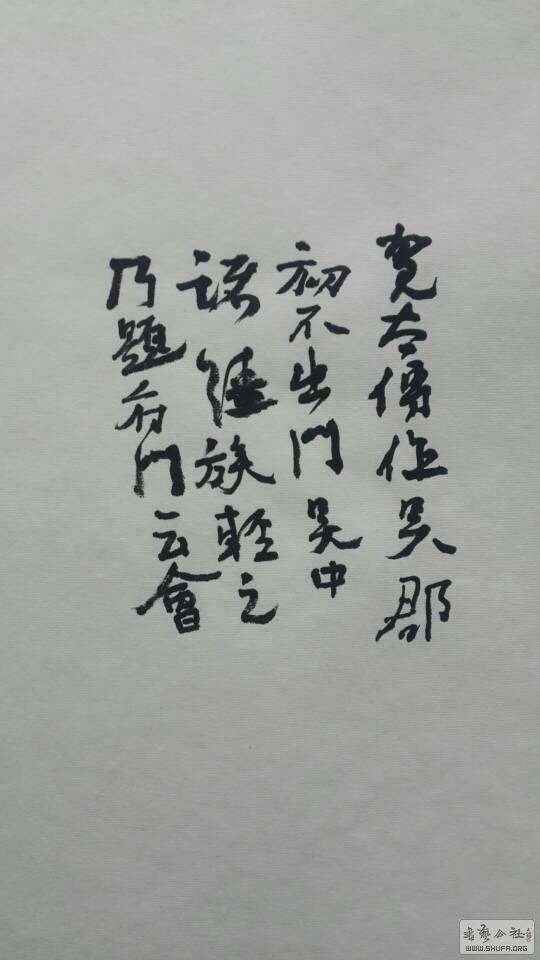 賀太傅作吳郡
初不出門吳中
諸強族輕之
乃題府門云會
書藝公社
WWW.SHUFA.ORG